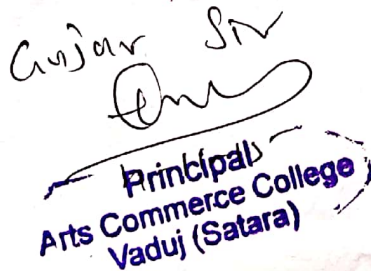 Gujar Sir
Principal
Arts Commerce College
Vaduj (Satara)